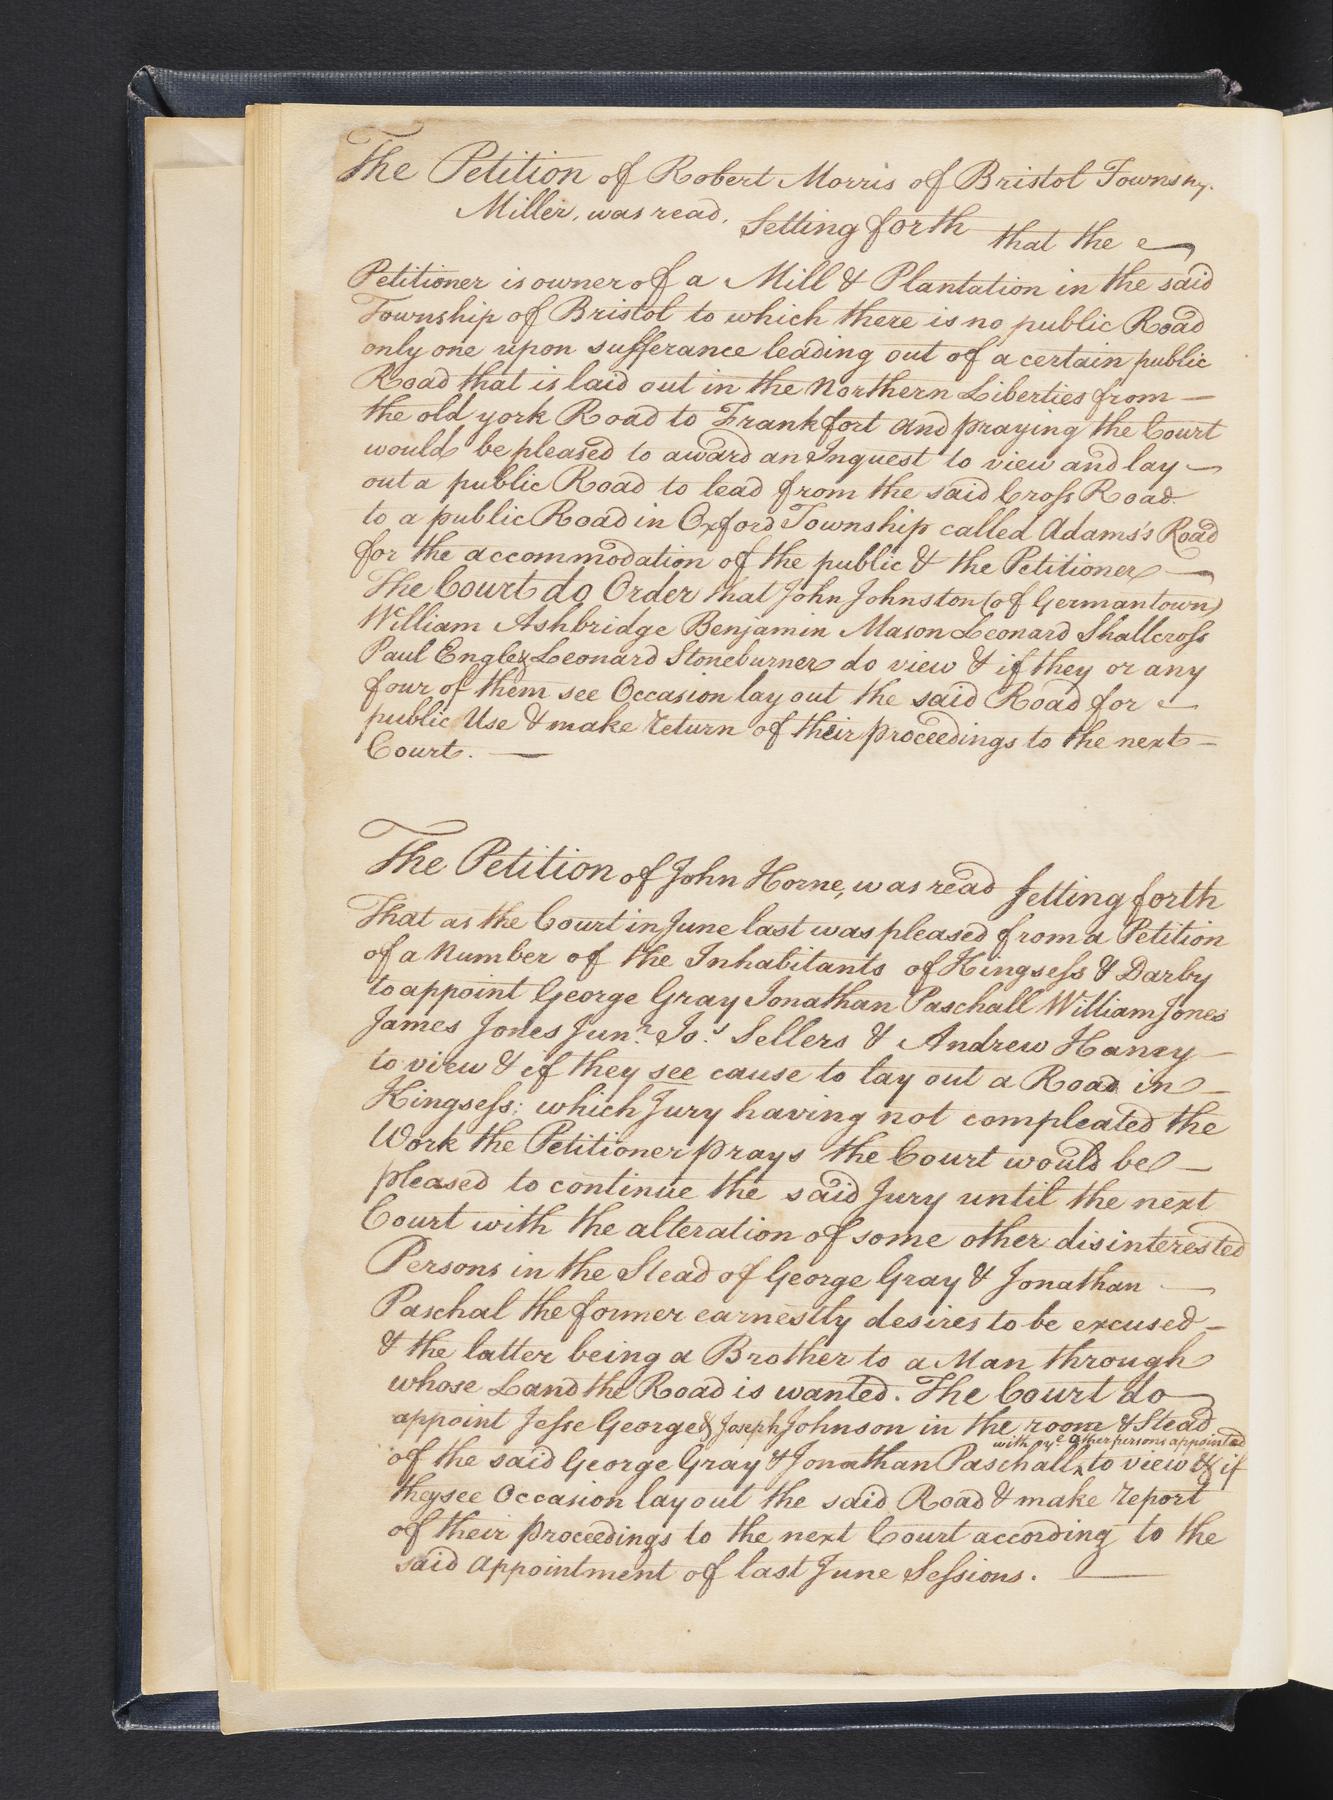 The Petition of Robert Morris of Bristol Townsp.
Miller, was read, Setting forth that the
Petitioner is owner of a Mill & Plantation in the said
Township of Bristol to which there is no public Road
only one upon sufferance leading out of a certain public
Road that is laid out in the Northern Liberties from —
the old york Road to Frankfort and praying the Court
would be pleased to award an Inquest to view and lay —
out a public Road to lead from the said Cross Road
to a public Road in Oxford Township called Adams's Road
for the accommodation of the public & the Petitioner —
The Court do Order that John Johnston (of Germantown)
William Ashbridge Benjamin Mason Leonard Shallcross
Paul Engle & Leonard Stoneburner do view & if they or any
four of them see Occasion lay out the said Road for —
public Use & make return of their proceedings to the next —
Court. —
The Petition of John Horne, was read Setting forth
That as the Court in June last was pleased from a Petition
of a Number of the Inhabitants of Kingsess & Darby
to appoint George Gray Jonathan Paschall William Jones
James Jones Junr. Jos. Sellers & Andrew Haney —
to view & if they see cause to lay out a Road in —
Kingsess: which Jury having not compleated the
Work the Petitioner prays the Court would be —
pleased to continue the said Jury until the next
Court with the alteration of some other disinterested
Persons in the Stead of George Gray & Jonathan —
Paschal the former earnestly desires to be excused —
& the latter being a Brother to a Man through
whose Land the Road is wanted. The Court do
appoint Jesse George & Joseph Johnson in the room & Stead
with ye. other persons appointed
of the said George Gray & Jonathan Paschall ^ to view & if
they see Occasion lay out the said Road & make report
of their proceedings to the next Court according to the
said appointment of last June Sessions. —